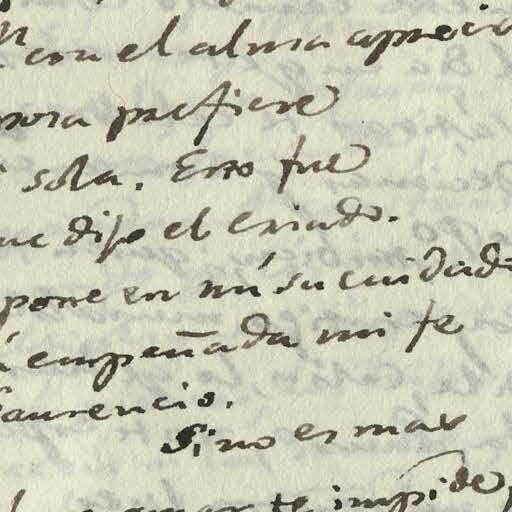 con el alma aprecio
prefiere
sola. Esso fue
dijo el Criado.
pone en mí su cuidado
empeñada mi fe
Laurencio.
Si no es mas
amar te impide